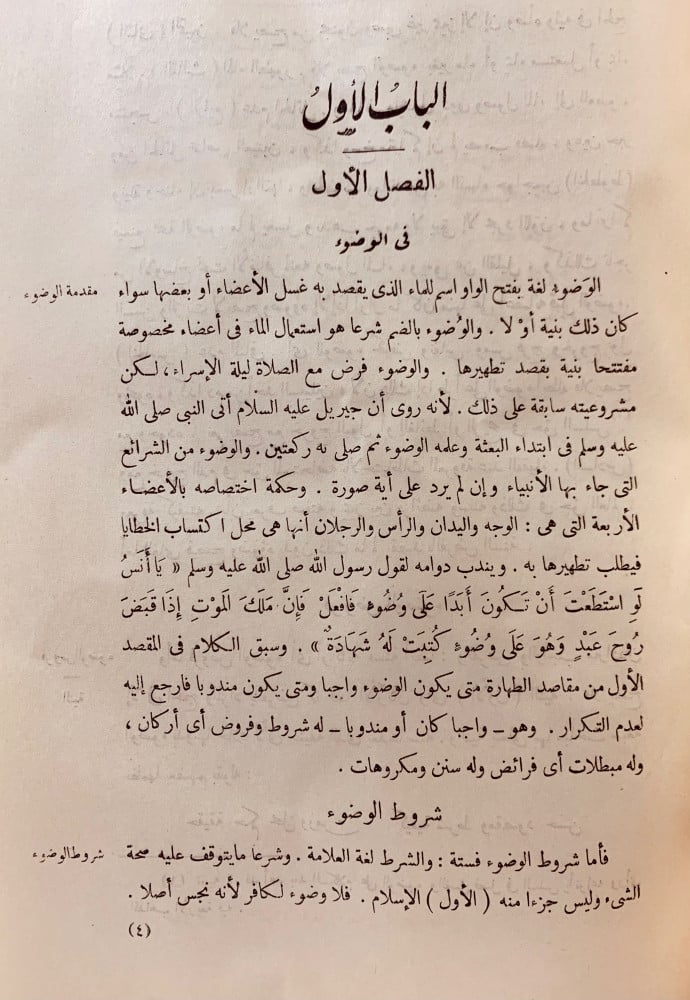 البابُ الأولُ
الفصل الأول
فى الوضوء
مقدمة الوضوء
الوَضوء لغة بفتح الواو اسم للماء الذى يقصد به غسل الأعضاء أو بعضها سواء
كان ذلك بنية أوْ لا . والوُضوء بالضم شرعا هو استعمال الماء فى أعضاء مخصوصة
مفتتحا بنية بقصد تطهيرها . والوضوء فرض مع الصلاة ليلة الإسراء، لكن
مشروعيته سابقة على ذلك . لأنه روى أن جبريل عليه السلام أتى النبى صلى الله
عليه وسلم فى ابتداء البعثة وعلمه الوضوء ثم صلى به ركعتين . والوضوء من الشرائع
التى جاء بها الأنبياء وإن لم يرد على أية صورة . وحكمة اختصاصه بالأعضاء
الأربعة التى هى : الوجه واليدان والرأس والرجلان أنها هى محل اكتساب الخطايا
فيطلب تطهيرها به . ويندب دوامه لقول رسول الله صلى الله عليه وسلم « يَا أَنَسُ
لَوِ اسْتَطَعْتَ أَنْ تَكُونَ أَبَدًا عَلَى وُضُوءٍ فَافْعَلْ فَإِنَّ مَلَكَ الْمَوْتِ إِذَا قَبَضَ
رُوحَ عَبْدٍ وَهُوَ عَلَى وُضُوءٍ كُتِبَتْ لَهُ شَهَادَةٌ » . وسبق الكلام فى المقصد
الأول من مقاصد الطهارة متى يكون الوضوء واجبا ومتى يكون مندوبا فارجع إليه
لعدم التكرار . وهو ــ واجبا كان أو مندوبا ــ له شروط وفروض أى أركان ،
وله مبطلات أى فرائض وله سنن ومكروهات .
شروط الوضوء
شروط الوضوء
فأما شروط الوضوء فستة : والشرط لغة العلامة . وشرعا مايتوقف عليه صحة
الشىء وليس جزءا منه ( الأول ) الإسلام . فلا وضوء لكافر لأنه نجس أصلا .
(٤)